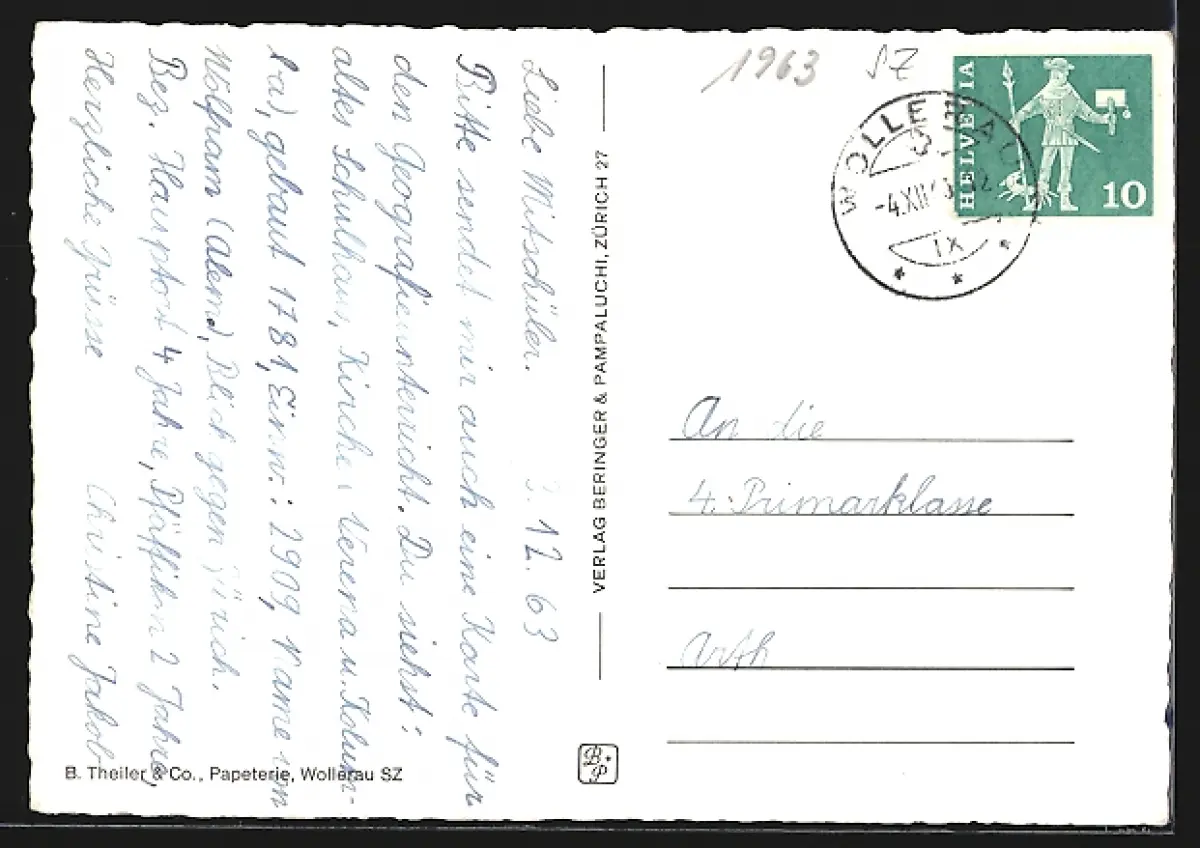 Liebe Mitschüler. 3. 12. 63
Bitte sendet mir auch eine Karte für
den Geografieunterricht. Du siehst:
altes Schulhaus, Kirche v. Verena u. Kolum-
ba), gebaut 1781, Einw.: 2909, Name von
Wolfram (alem.), Blick gegen Zürich.
Bez. Hauptort 4 Jahre, Pfäffikon 2 Jahre,
Herzliche Grüsse Christine Jakob
B. Theiler & Co., Papeterie, Wollerau SZ
VERLAG BERINGER & PAMPALUCHI, ZÜRICH 27
B P
1963 SZ
WOLLERAU
-4.XII
IX
HELVETIA
10
An die
4. Primarklasse
Arth